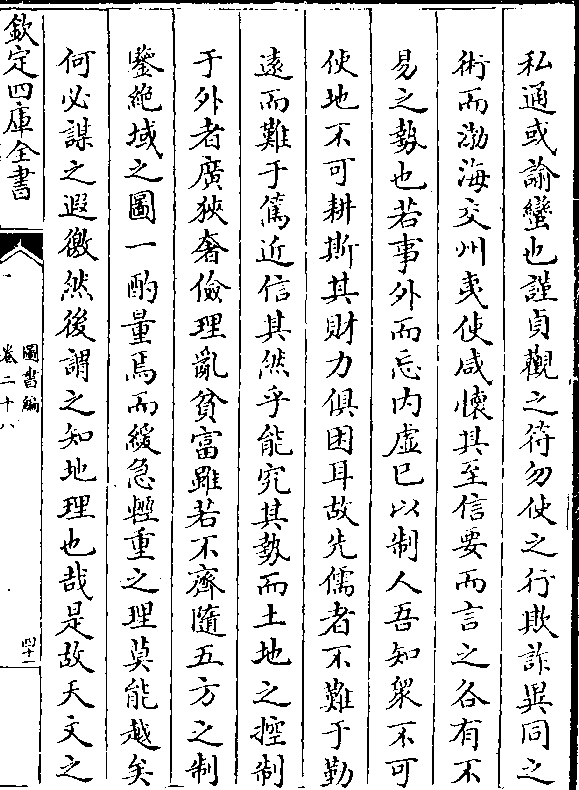 私通或諭蠻也謹貞觀之符勿使之行欺詐異同之
術而渤海交州夷使咸懷其至信要而言之各有不
易之勢也若事外而忘内虚已以制人吾知衆不可
使地不可耕斯其財力俱困耳故先儒者不難于勤
逺而難于篤近信其然乎能究其勢而土地之控制
于外者廣狹奢儉理亂貧富雖若不齊隨五方之制
鑒絶域之圖一酌量焉而緩急輕重之理莫能越矣
何必謀之遐徼然後謂之知地理也哉是故天文之
欽定四庫全書
圖書編
卷二十八
四十一